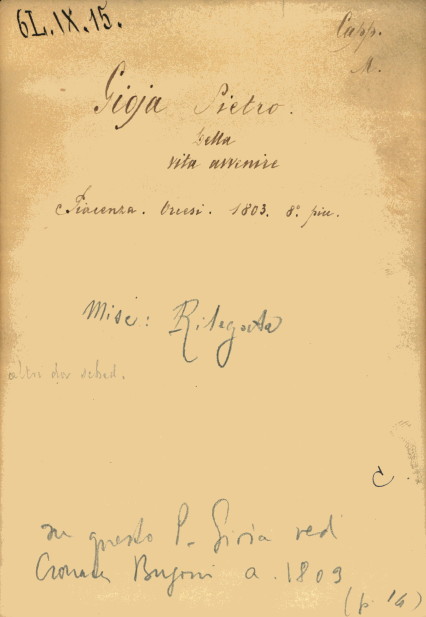 6L.IX.15.
Capp.
M.
Gioja Pietro.
Della
vita avvenire
Piacenza. Orcesi. 1803. 8.° picc.
Misc: Rilegata
altri da sched.
C.
Su questo P. Gioia vedi
Cronaca Bugoni a. 1809
(p. 14)